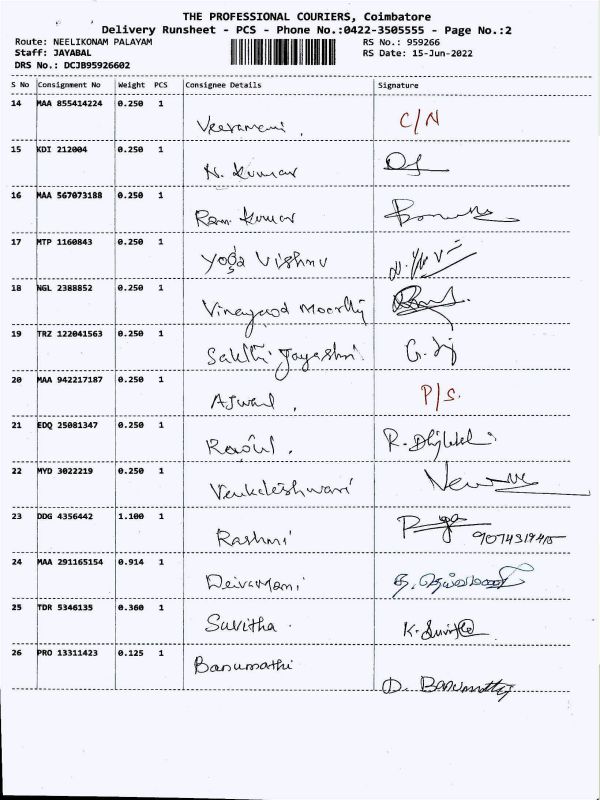 THE PROFESSIONAL COURIERS, Coimbatore
Delivery Runsheet - PCS - Phone No.:0422-3505555 - Page No.:2
Route: NEELIKONAM PALAYAM RS No.: 959266
Staff: JAYABAL RS Date: 15-Jun-2022
DRS No.: DCJB95926602
S No Consignment No Weight PCS Consignee Details Signature
14 MAA 855414224 0.250 1
Veeramani. C/N
15 KDI 212004 0.250 1
N. Kumar
16 MAA 567073188 0.250 1
Ram Kumar
17 MTP 1160843 0.250 1
Yoga Vishnu
18 NGL 2388852 0.250 1
Vinayagod Moorthy
19 TRZ 122041563 0.250 1
Sakthi Jayashri
20 MAA 942217187 0.250 1
P/S.
21 EDQ 25081347 0.250 1
22 MYD 3022219 0.250 1
Venkateshwari
23 DDG 4356442 1.100 1
Rashmi 9074319415
24 MAA 291165154 0.914 1
Deivamani
25 TDR 5346135 0.360 1
Savitha. K. Savitha
26 PRO 13311423 0.125 1
Banumathi
D. Banumathy